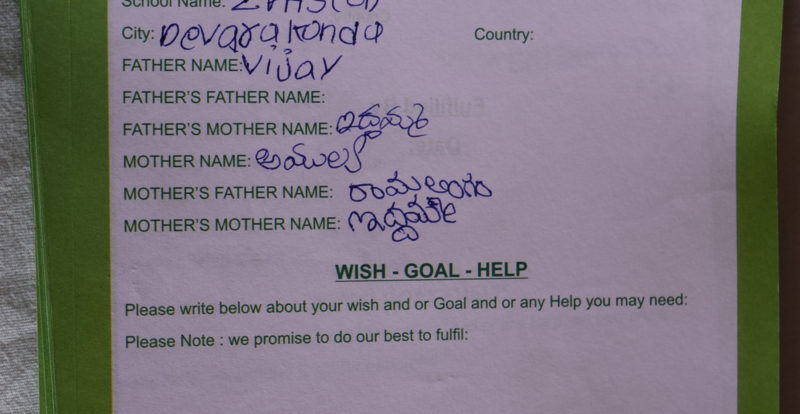 School Name: ZPHS(G)
City: Devarakonda Country:
FATHER NAME: Vijay
FATHER'S FATHER NAME:
FATHER'S MOTHER NAME: ఇద్దమ్మ
MOTHER NAME: అములు
MOTHER'S FATHER NAME: రామలింగం
MOTHER'S MOTHER NAME:
WISH - GOAL - HELP
Please write below about your wish and or Goal and or any Help you may need:
Please Note : we promise to do our best to fulfil: